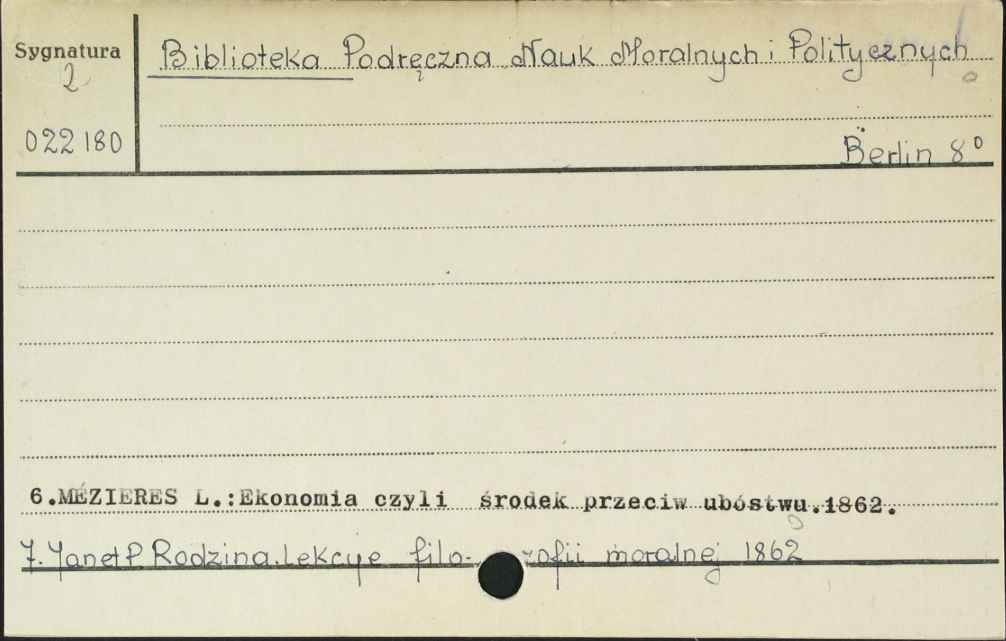 Sygnatura
2
022180
Biblioteka Podręczna Nauk Moralnych i Politycznych
Berlin 8⁰
6.MÉZIERES L.:Ekonomia czyli środek przeciw ubóstwu.1862.
7. Janet P. Rodzina. Lekcye filo-zofii moralnej 1862